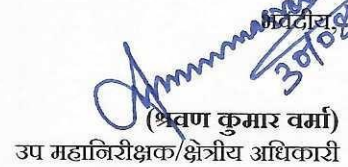 भवदीय,
(श्रवण कुमार वर्मा)
उप महानिरीक्षक/क्षेत्रीय अधिकारी